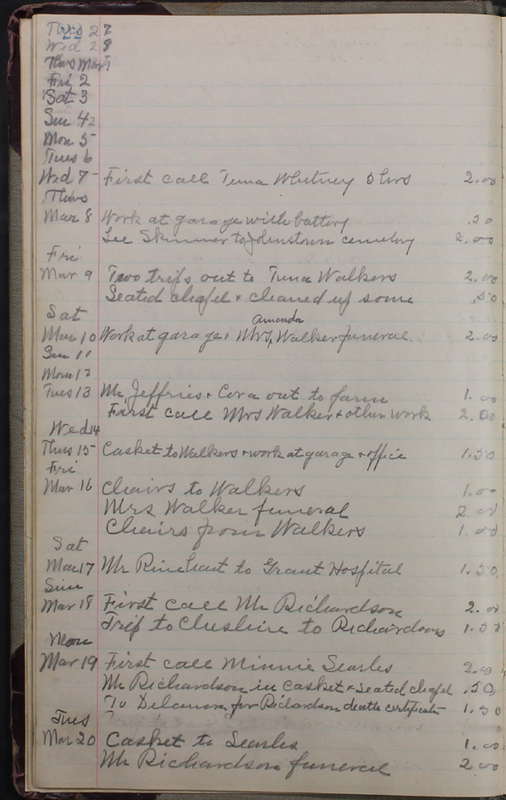 22
Tues 27
Wed 28
Thurs Mar 1
Fri 2
Sat 3
Sun 4
Mon 5
Tues 6
Wed 7 First call Tuna Whitney 5 hrs 2.00
Thurs
Mar 8 Work at garage with battery .50
Lee Skinner to Johnstown cemetery 2.00
Fri
Mar 9 Two trips out to Tuna Walkers 2.00
Seated chapel & cleaned up some .50
Sat Amanda
Mar 10 Work at garage, Mrs, Walker funeral 2.00
Sun 11
Mon 12
Tues 13 Mr Jeffries & Cora out to farm 1.00
First call Mrs Walker & other work 2.00
Wed 14
Thurs 15 Casket to Walkers & work at garage & office 1.50
Fri
Mar 16 Chairs to Walkers 1.00
Mrs Walker funeral 2.00
Chairs from Walkers 1.00
Sat
Mar 17 Mr Rinehart to Grant Hospital 1.50
Sun
Mar 18 First call Mr Richardson 2.00
Trip to Cheshire to Richardsons 1.50
Mon
Mar 19 First call Minnie Searles 2.00
Mr Richardson in casket & seated chapel .50
To Delaware for Richardson death certificate 1.50
Tues
Mar 20 Casket to Searles 1.00
Mr Richardson funeral 2.00